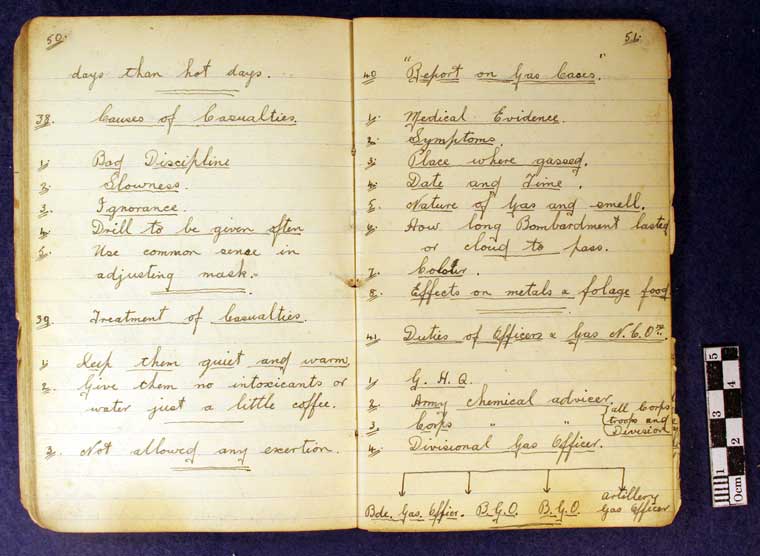 50.
days than hot days.
38. Causes of Casualties.
1. Bad Discipline
2. Slowness.
3. Ignorance.
4. Drill to be given often
5. Use common sense in
adjusting mask.
39. Treatment of Casualties.
1. Keep them quiet and warm
2. Give them no intoxicants or
water just a little coffee.
3. Not allowed any exertion.
51.
40 "Report on Gas Cases."
1. Medical Evidence.
2. Symptoms.
3. Place where gassed.
4. Date and Time.
5. Nature of Gas and smell.
6. How long Bombardment lasted
or cloud to pass.
7. Colour.
8. Effects on metals & folage food
41 Duties of Officers & Gas N.C.Os.
1. G. H. Q.
2. Army chemical advicer.
3 Corps " "
all Corps
troops and
Division
4. Divisional Gas Officer.
Bde. Gas. Officer. B.G.O. B.G.O. Artillery
Gas Officer
0cm 1 2 3 4 5